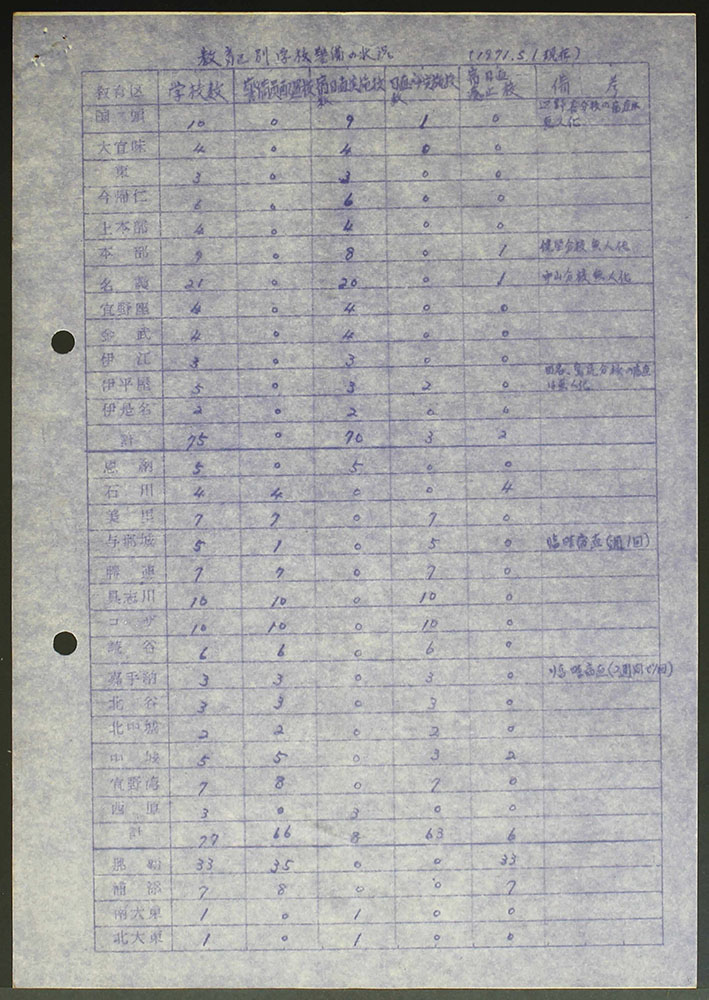 教育区別学校警備の状況 (1971.5.1現在)
教育区 学校数 警備員配置校数 宿日直実施校数 日直のみ実施校数 宿日直廃止校 備考
国頭 10 0 9 1 0
大宜味 4 0 4 0 0
東 3 0 3 0 0
今帰仁 6 0 6 0 0
上本部 4 0 4 0 0
本部 9 0 8 0 1 分校無人化
名護 21 0 20 0 1 中山分校無人化
宜野座 4 0 4 0 0
金武 4 0 4 0 0
伊江 3 0 3 0 0
伊平屋 5 0 3 2 0 田名、分校の宿直は無人化
伊是名 2 0 2 0 0
計 75 0 70 3 2
恩納 5 0 5 0 0
石川 4 4 0 0 4
美里 7 7 0 7 0
与那城 5 1 0 5 0 臨時宿直(週1回)
勝連 7 7 0 7 0
具志川 10 10 0 10 0
コザ 10 10 0 10 0
読谷 6 6 0 6 0
嘉手納 3 3 0 3 0 臨時宿直(2週間で1回)
北谷 3 3 0 3 0
北中城 2 2 0 2 0
中城 5 5 0 3 2
宜野湾 7 8 0 7 0
西原 3 0 3 0 0
計 77 66 8 63 6
那覇 33 35 0 0 33
浦添 7 8 0 0 7
南大東 1 0 1 0 0
北大東 1 0 1 0 0